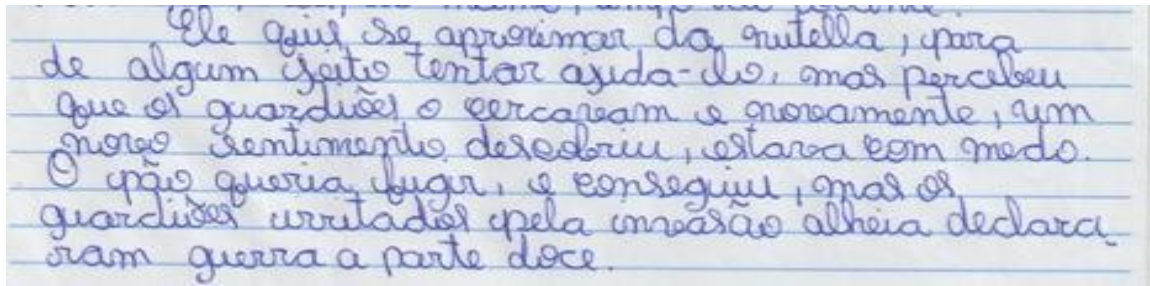 Ele quis se aproximar da nutella, para
de algum jeito tentar ajuda-lo, mas percebeu
que os guardiões o cercavam e novamente, um
novo sentimento descobriu, estava com medo.
O pão queria fugir, e conseguiu, mas os
guardiões irritados pela invasão alheia declara-
ram guerra a parte doce.